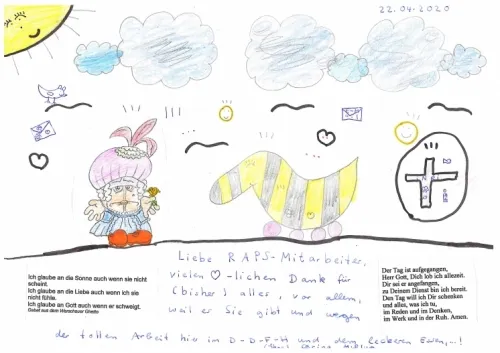 22.04.2020
Liebe RAPS-Mitarbeiter,
vielen ♡-lichen Dank für
(bisher) alles, vor allem,
weil es Sie gibt und wegen
der tollen Arbeit hier im D-D-F-H und dem leckeren Essen,...!
Ich glaube an die Sonne auch wenn sie nicht
scheint.
Ich glaube an die Liebe auch wenn ich sie
nicht fühle.
Ich glaube an Gott auch wenn er schweigt.
Gebet aus dem Warschauer Ghetto
Der Tag ist aufgegangen,
Herr Gott, Dich lob ich allezeit.
Dir sei er angefangen,
zu Deinem Dienst bin ich bereit.
Den Tag will ich Dir schenken
und alles, was ich tu,
im Reden und im Denken,
im Werk und in der Ruh. Amen.